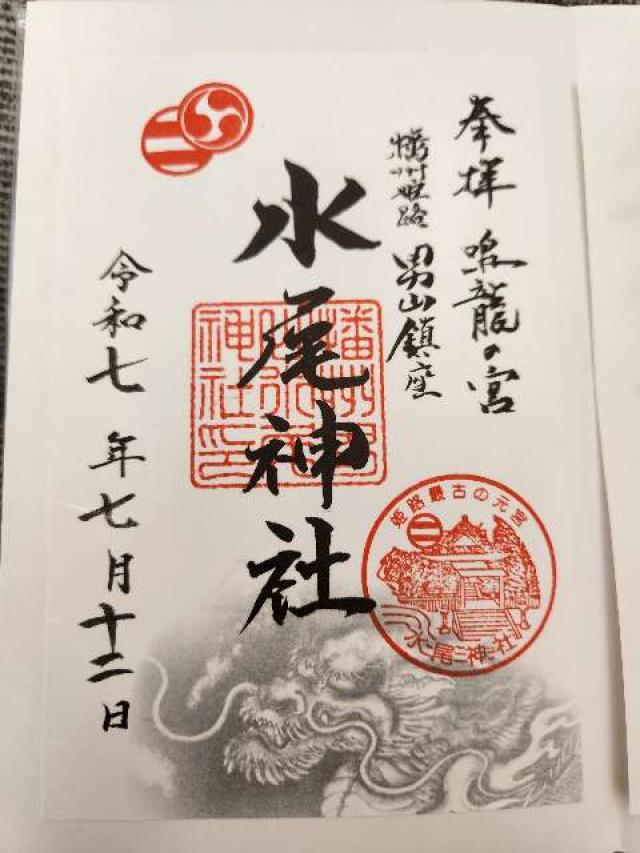 奉拝 鳴龍の宮
播州姫路 男山鎮座
水尾神社
令和七年七月十二日
姫路最古の元宮
水尾神社